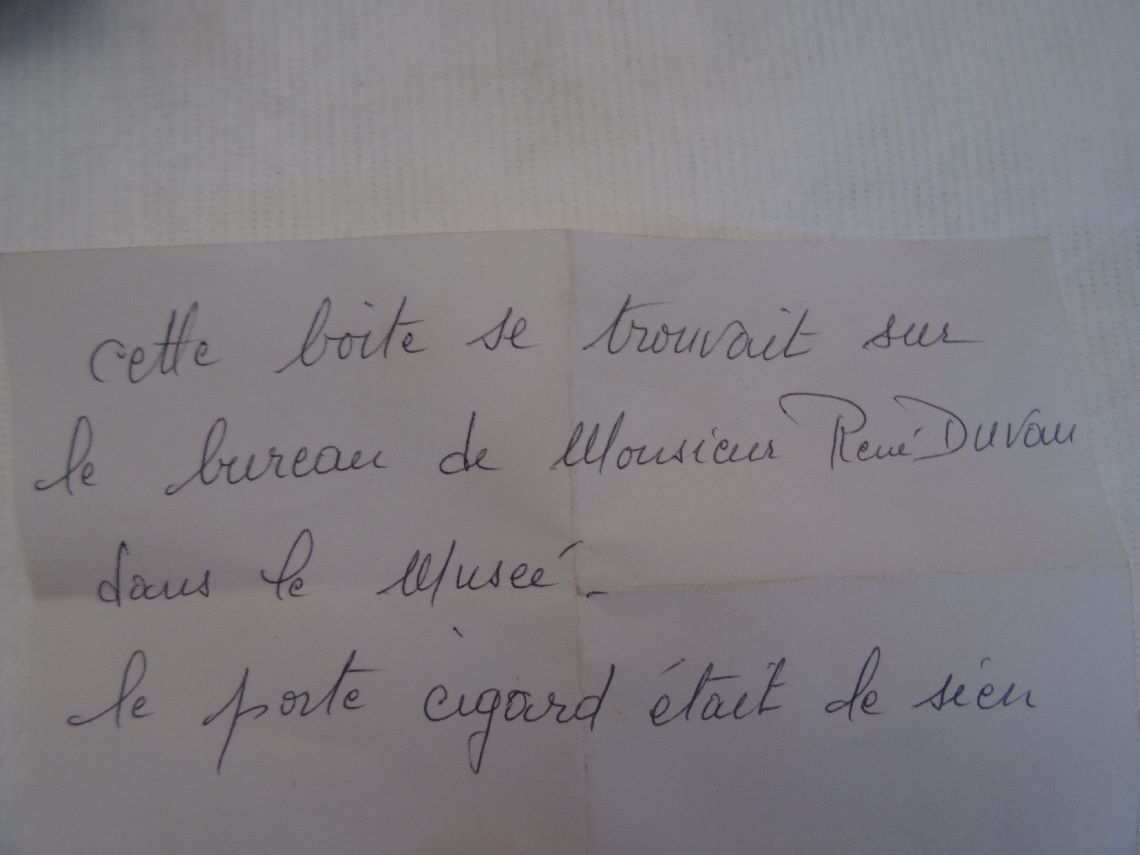 cette boite se trouvait sur
le bureau de Monsieur René Duvau
dans le Museé.
le porte cigard était le sien